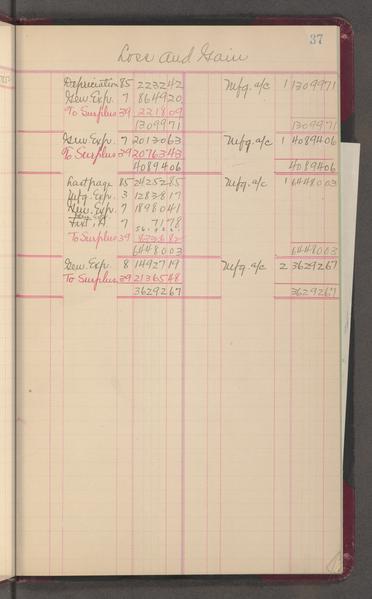 37
Loss and Gain
Depreciation 85 223242 Mfg. a/c 1 1309971
Gen Exp. 7 864920
To Surplus 39 221809
1309971 1309971
Gen Exp. 7 2013063 Mfg. a/c 1 4089406
To Surplus 39 2076343
4089406 4089406
Lastpage 85 2425285 Mfg. a/c 1 6448003
Mfg. Exp. 3 1283817
Gen. Exp. 7 1898041
7 7178
To Surplus 39
6448003 6448003
Gen. Exp 8 1492719 Mfg. a/c 2 3629267
To Surplus 39 2136548
3629267 3629267